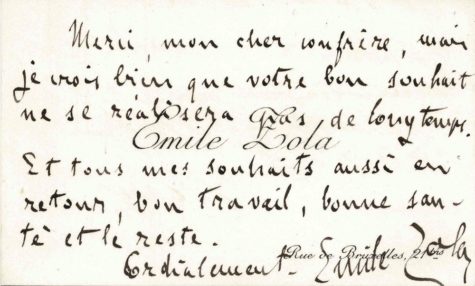 Merci, mon cher confrère, mais
je crois bien que votre bon souhait
ne se réalisera pas de longtemps.
Emile Zola
Et tous mes souhaits aussi en
retour, bon travail, bonne san-
té et le reste.
Rue de Bruxelles, 21bis
Cordialement. Emile Zola